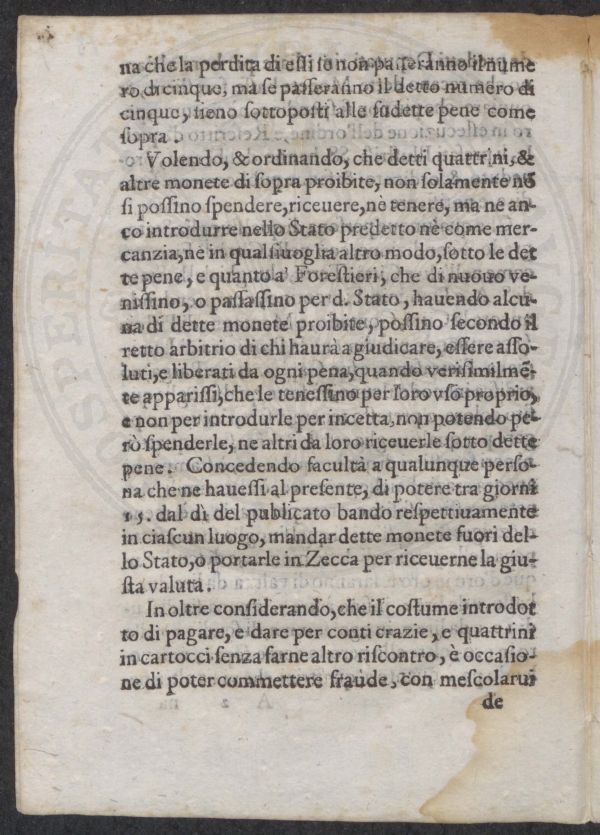 na che la perdita di essi se non passeranno il nume
ro di cinque, ma se passeranno il detto numero di
cinque, sieno sottoposti alle sudette pene come
sopra.
Volendo, & ordinando, che detti quattrini, &
altre monete di sopra proibite, non solamente nõ
si possino spendere, riceuere, nè tenere, ma ne an-
co introdurre nello Stato predetto nè come mer-
canzia, ne in qualsiuoglia altro modo, sotto le det
te pene, e quanto a' Forestieri, che di nuouo ve-
nissino, o passassino per d. Stato, hauendo alcu-
na di dette monete proibite, possino secondo il
retto arbitrio di chi haurà a giudicare, essere asso-
luti, e liberati da ogni pena, quando verisimilmẽ-
te apparissi, che le tenessino per loro vso proprio,
e non per introdurle per incetta, non potendo pe-
rò spenderle, ne altri da loro riceuerle sotto dette
pene. Concedendo facultà a qualunque perso-
na che ne hauessi al presente, di potere tra giorni
15. dal dì del publicato bando respettiuamente
in ciascun luogo, mandar dette monete fuori del-
lo Stato, o portarle in Zecca per riceuerne la giu-
sta valuta.
In oltre considerando, che il costume introdot
to di pagare, e dare per conti crazie, e quattrini
in cartocci senza farne altro riscontro, è occasio-
ne di poter commettere fraude, con mescolarui
de